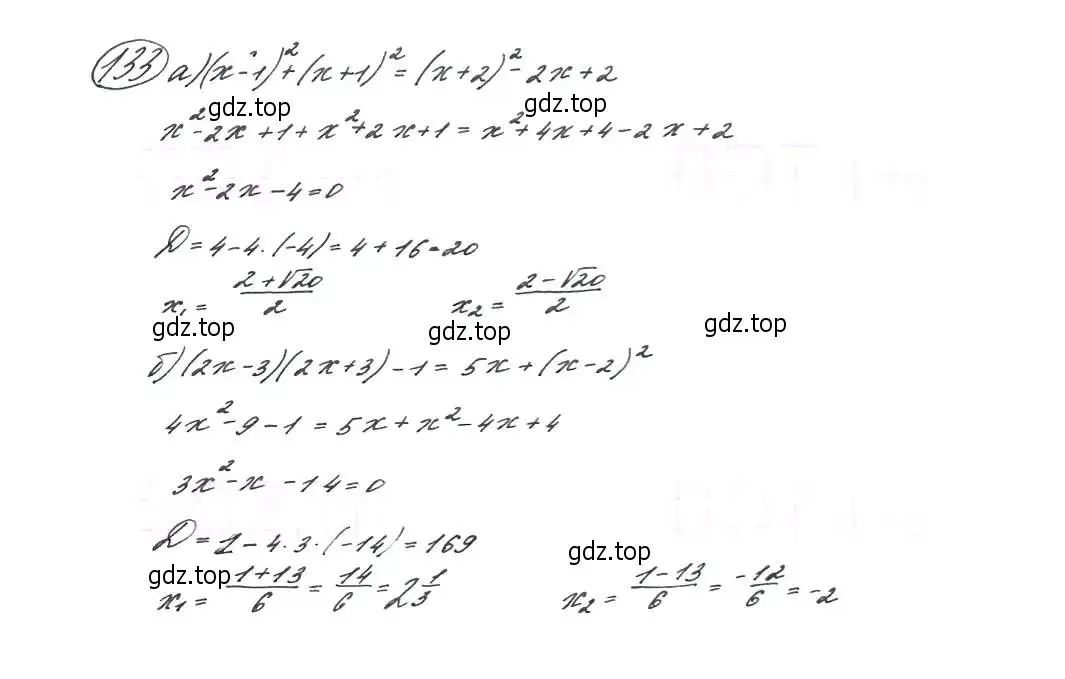 133 а) (x-1)² + (x+1)² = (x+2)² - 2x + 2
gdz.top gdz.top
x² - 2x + 1 + x² + 2x + 1 = x² + 4x + 4 - 2x + 2
x² - 2x - 4 = 0
D = 4 - 4 · (-4) = 4 + 16 = 20
x₁ = (2 + √20)/2 x₂ = (2 - √20)/2
gdz.top gdz.top gdz.top
б) (2x - 3)(2x + 3) - 1 = 5x + (x - 2)²
4x² - 9 - 1 = 5x + x² - 4x + 4
3x² - x - 14 = 0
D = 1 - 4 · 3 · (-14) = 169
gdz.top gdz.top
x₁ = (1 + 13)/6 = 14/6 = 2 1/3 x₂ = (1 - 13)/6 = -12/6 = -2